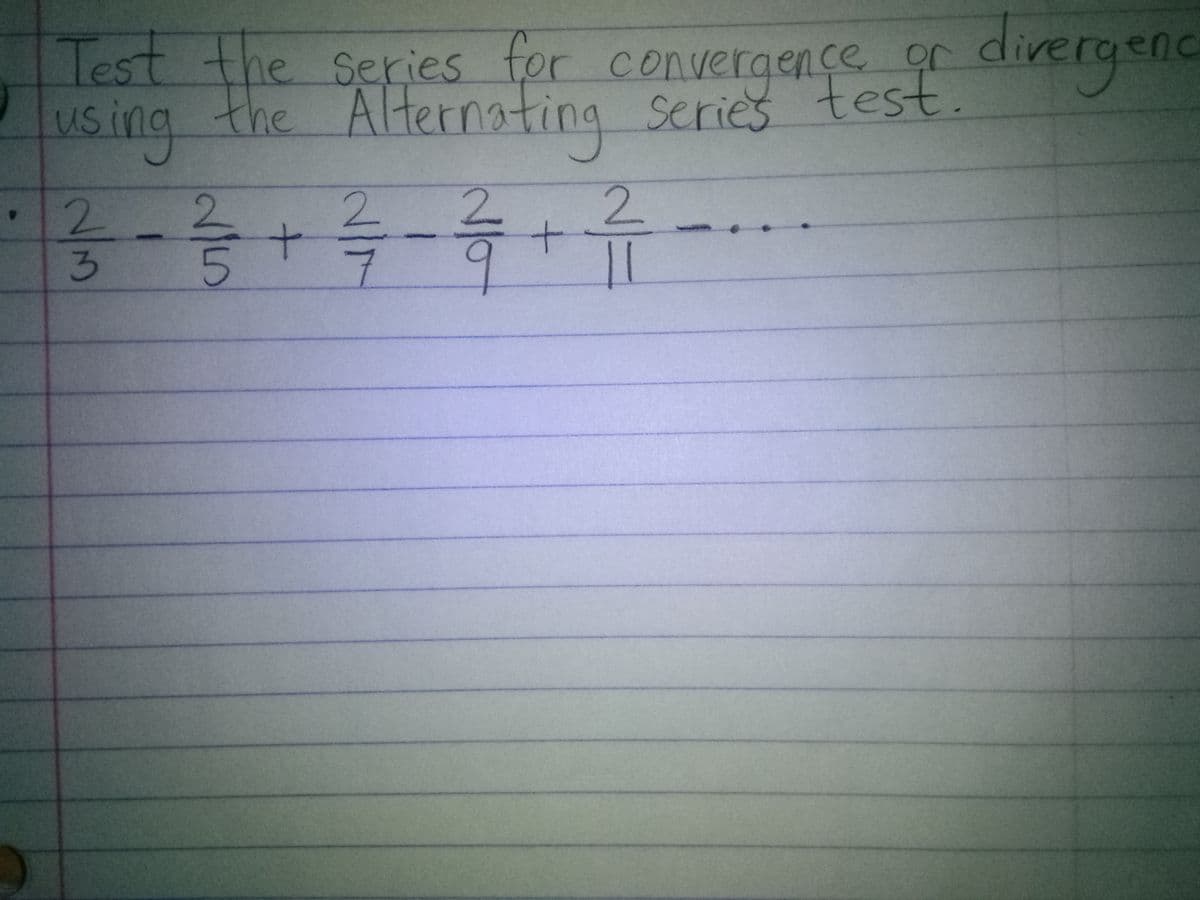 Test the series for convergence or divergenc
using the Alternating series test.
2/3 - 2/5 + 2/7 - 2/9 + 2/11 - ....